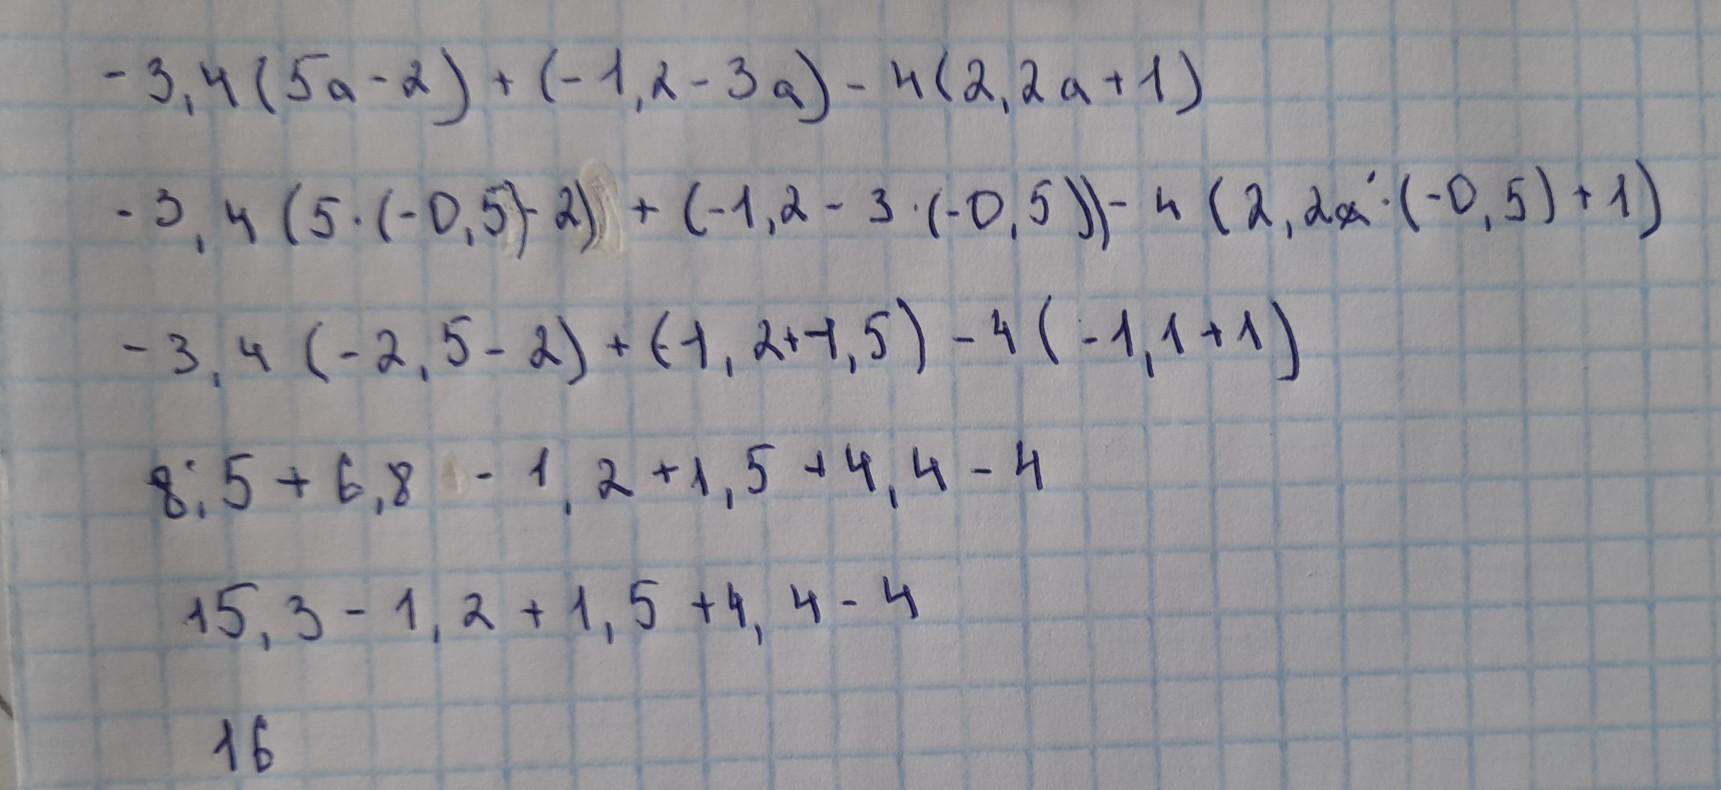 -3,4(5a-2)+(-1,2-3a)-4(2,2a+1)
-3,4(5·(-0,5)-2)+(-1,2-3·(-0,5))-4(2,2·(-0,5)+1)
-3,4(-2,5-2)+(-1,2+1,5)-4(-1,1+1)
8,5+6,8-1,2+1,5+4,4-4
15,3-1,2+1,5+4,4-4
16